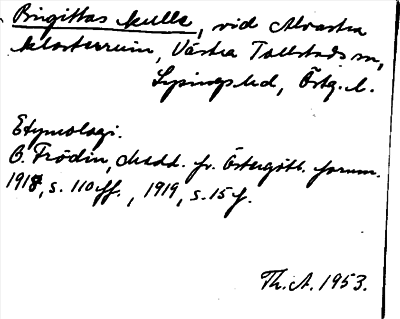 Birgittas kulle, vid Alvastra
klosterruin, Västra Tollstads sn,
Lysings hd, Östg. l.
Etymologi.
O. Frödin, Medd. fr. Östergötl. fornm.
1918, s. 110 ff., 1919, s. 15 f.
Th. A. 1953.